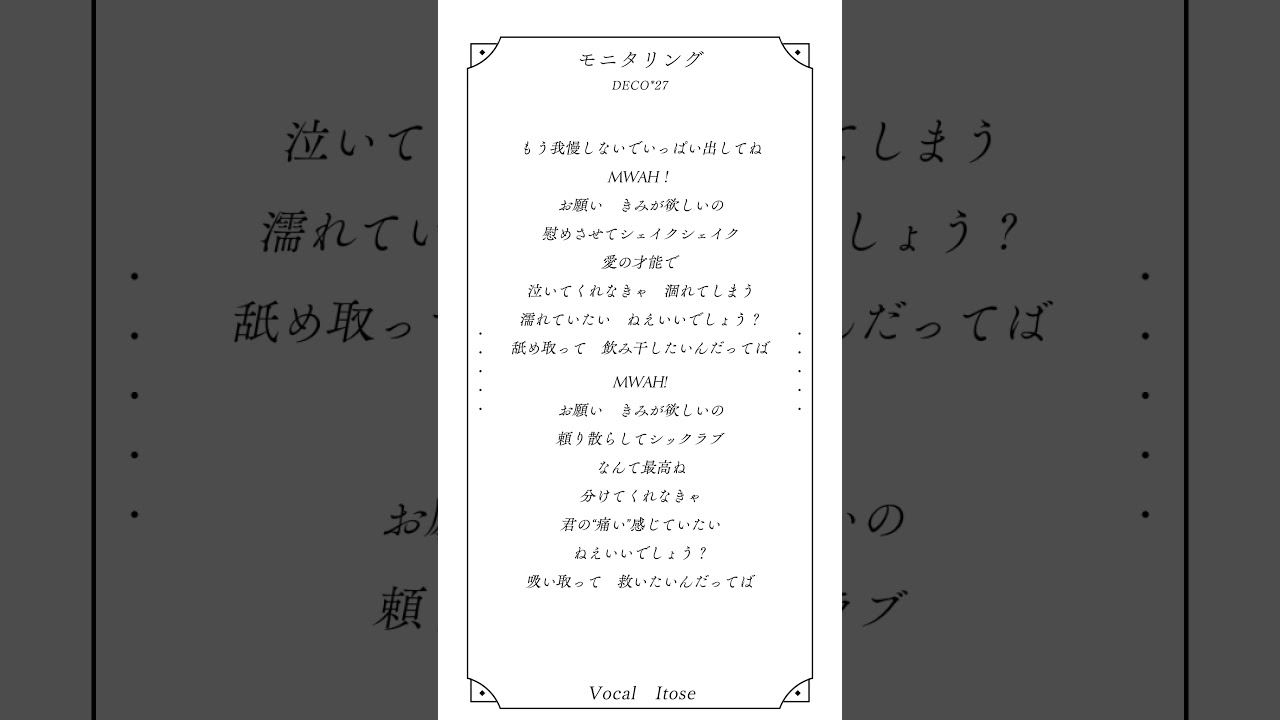 モニタリング
DECO*27
もう我慢しないでいっぱい出してね
MWAH！
お願い　きみが欲しいの
慰めさせてシェイクシェイク
愛の才能で
泣いてくれなきゃ　涸れてしまう
濡れていたい　ねえいいでしょう？
舐め取って　飲み干したいんだってば
MWAH!
お願い　きみが欲しいの
頼り散らしてシックラブ
なんて最高ね
分けてくれなきゃ
君の“痛い”感じていたい
ねえいいでしょう？
吸い取って　救いたいんだってば
Vocal　Itose
泣いて
てしまう
濡れてい
しょう？
舐め取っ
んだってば
お願
いの
頼
ラブ